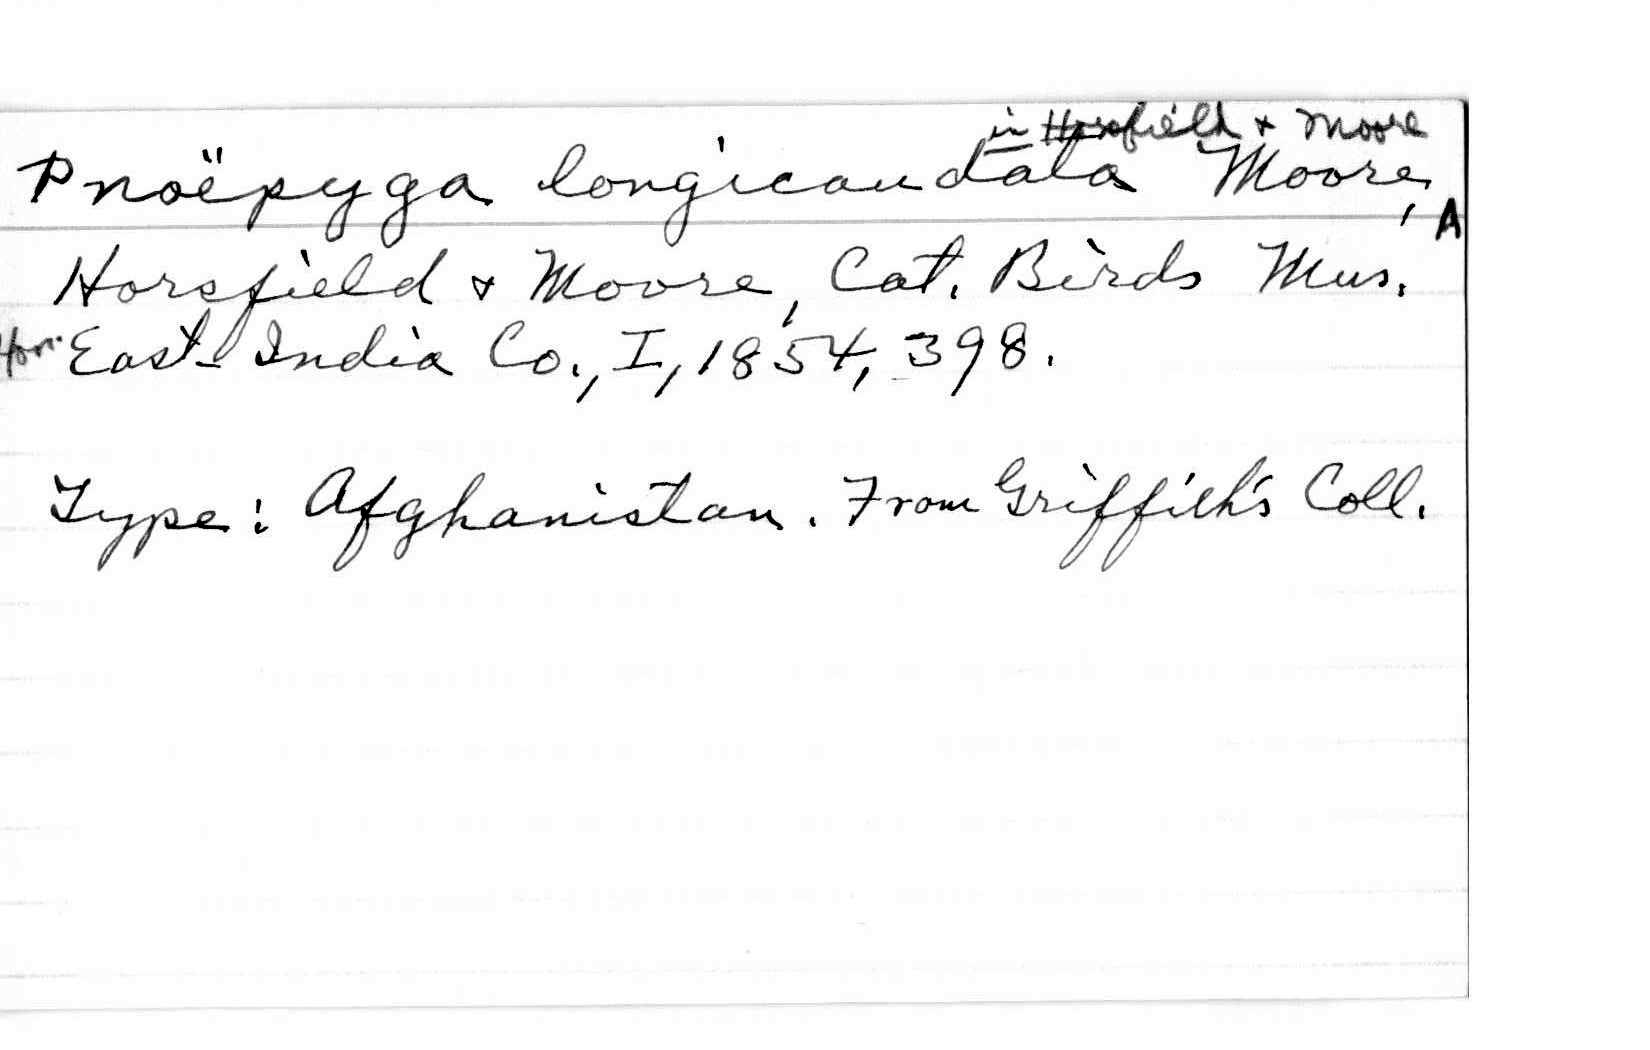 in Horsfield & Moore
Pnoëpyga longicaudata Moore,
A
Horsfield & Moore, Cat. Birds Mus.
Hon. East India Co., I, 1854, 398.
Type: Afghanistan. From Griffith's Coll.